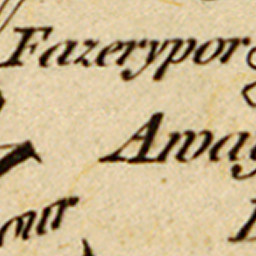 Fazerypor
Amag
our